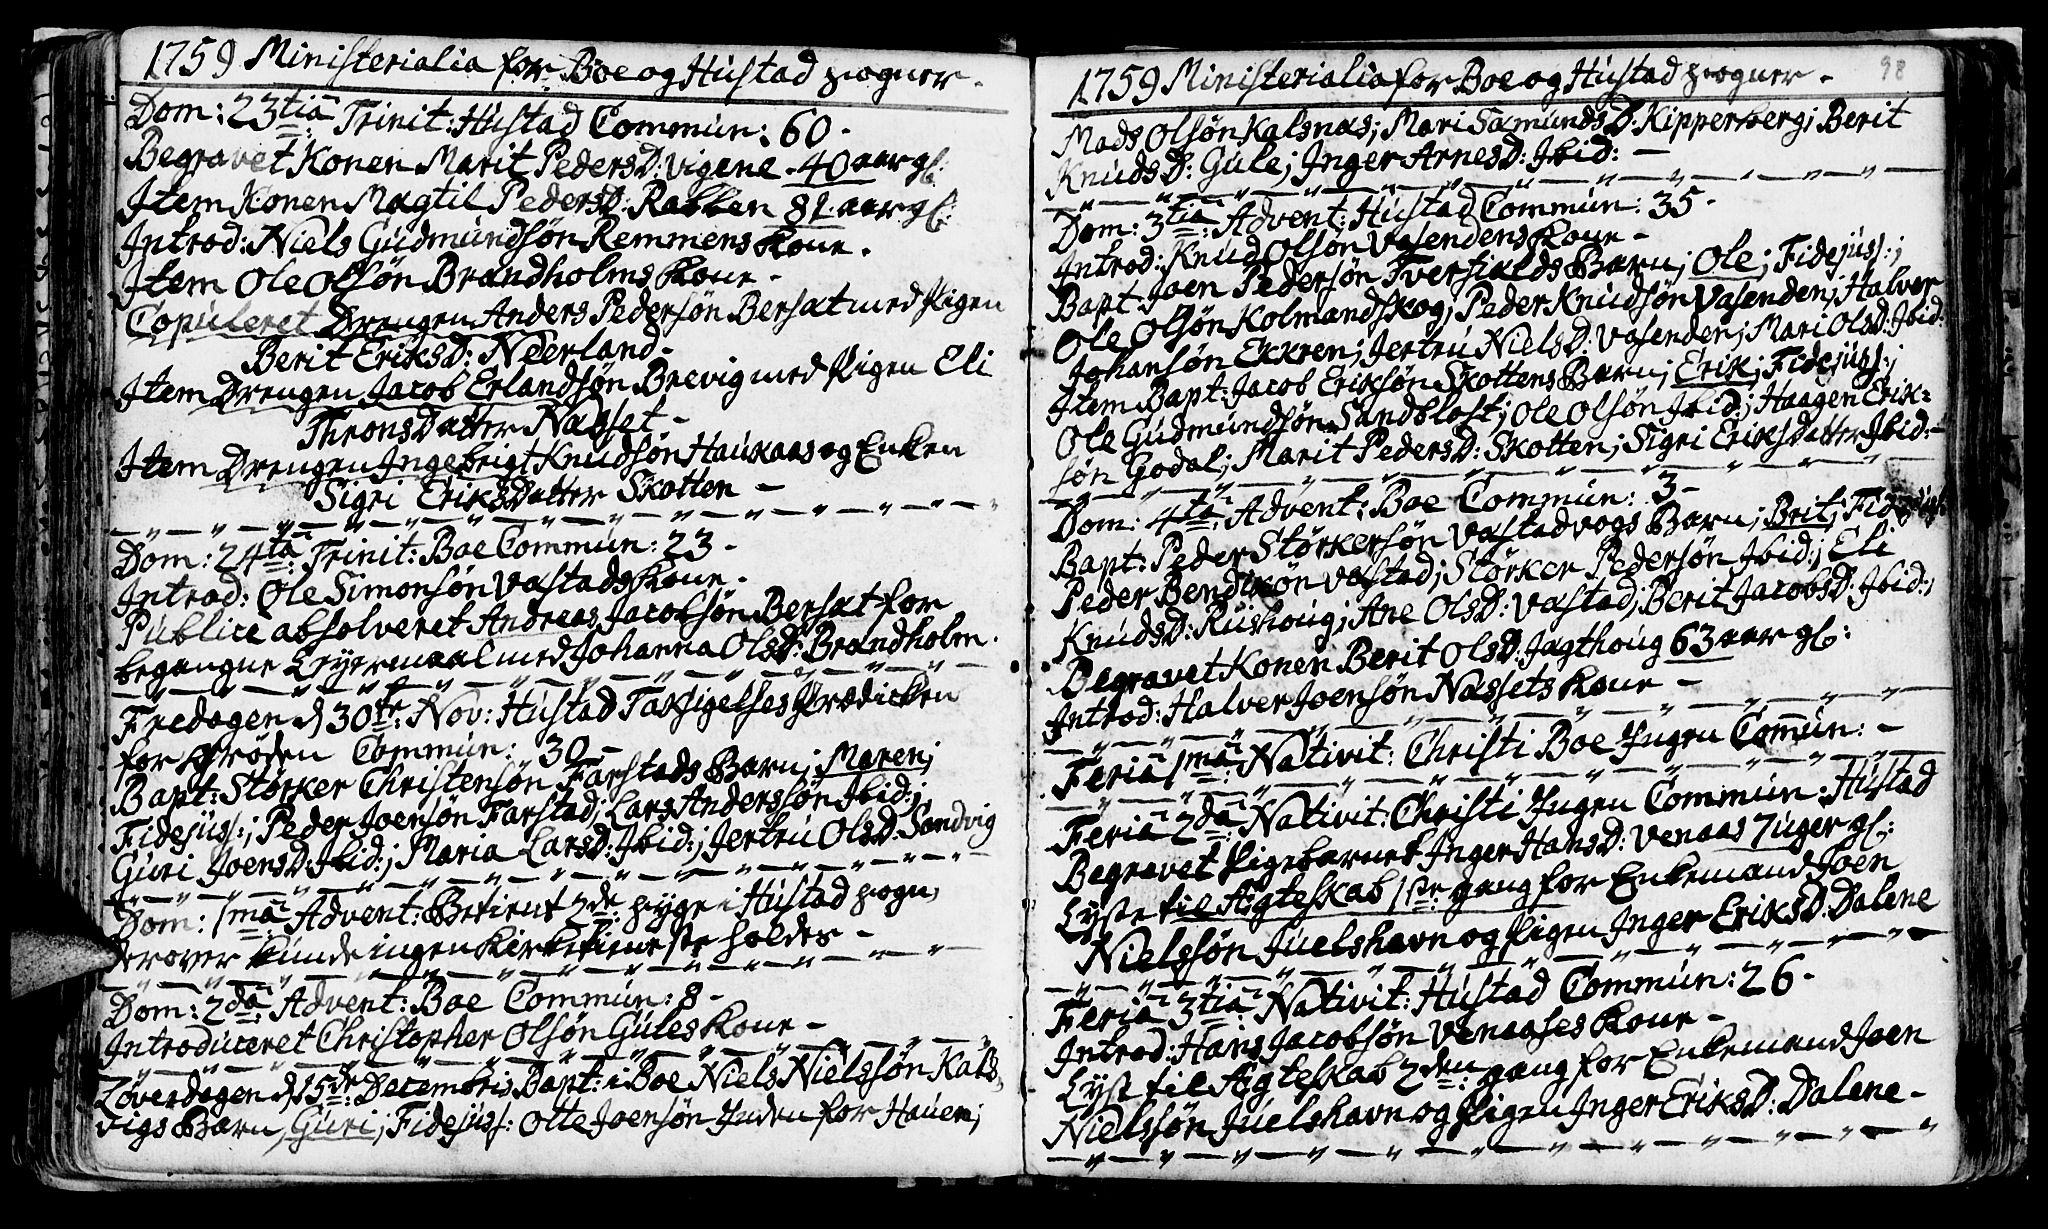 1759 Ministerialia for Boe og Hustad sogner.
Dom: 23tia Trinit: Hustad Commun: 60.
Begravet Konen Marit PedersD: Vigene. 40 aar gl:
Item Konen Magtil PedersD: Rabben 81 aar gl:
Introd: Niels Gudmundsøn Remmens Kone.
Item Ole Olsøn Brandholms Kone.
Copuleret Drengen Anders Pedersøn Bersæt med Pigen
Berit EriksD: Neerland.
Item Drengen Jacob Erlandsøn Brevig med Pigen Eli
Thronsdatter Næsset.
Item Drengen Ingebrigt Knudsøn Haukaas og Enken
Sigri Eriksdatter Skotten –
Dom: 24ta Trinit: Boe Commun: 23.
Introd: Ole Simonsøn Vastads Kone.
Publice absolveret Andreas Jacobsøn Bersæt for
begangne Leyermaal med Johanna OlsD: Brandholm.
Fredagen d 30te Nov: Hustad Taksigelses Prædicken
for Grøden Commun: 30 –
Bapt: Størker Christensøn Farstads Barn; Maren;
Fidejuss:; Peder Joensøn Farstad; Lars Anderssøn Ibid:;
Guri JoensD: Ibid:; Maria LarsD: Ibid:; Jertru OlsD: Sandvig
Dom: 1ma Advent: Betient 2de syge i Hustad sogn,
derover kunde ingen Kirketieneste holdes –
Dom: 2da Advent: Boe Commun: 8.
Introduceret Christopher Olsøn Gules Kone –
Løverdagen d 15de Decembris Bapt: i Boe Niels Nielssøn Kals,
vigs Barn, Guri; Fidejuss: Otte Joensøn Inden for Hauen;
1759 Ministerialia for Boe og Hustad sogner.
98
Mads Olsøn Kalsnæs; Mari SæmundsD: Kipperberg; Berit
KnudsD: Gule; Inger ArnesD: Ibid: –
Dom: 3tia Advent: Hustad Commun: 35.
Introd: Knud Olsøn Vasendens Kone –
Bapt: Joen Pedersøn Tverfialds Barn; Ole; Fidejuss:;
Ole Olsøn Kolmandskog; Peder Knudsøn Vasenden; Halver
Johansøn Ekkren; Jertru NielsD: Vasenden; Mari OlsD: Ibid:
Item Bapt: Jacob Eriksøn Skottens Barn; Erik; Fidejuss:;
Ole Gudmundsøn Sandbløst; Ole Olsøn Ibid:; Haagen Erik=
søn Godal; Marit PedersD: Skotten; Sigri Eriksdatter Ibid: –
Dom: 4ta Advent: Boe Commun: 3 –
Bapt: Peder Størkersøn Vastadvogs Barn; Brit; Fidejuss:
Peder Bendtsøn Vastad; Størker Pedersøn Ibid:; Eli
KnudsD: Rushoug; Ane OlsD: Vastad; Berit JacobsD: Ibid:;
Begravet Konen Berit OlsD: Jagthoug 63 aar gl:
Introd: Halver Joensøn Næssets Kone –
Feria 1ma Nativit: Christi Boe Ingen Comun: –
Feria 2da Nativit: Christi Ingen Commun: Hustad
Begravet Pigebarnet Inger HansD: Venaas 7 uger gl:
Lyste til Ægteskab 1ste gang for Enkemand Joen
Nielssøn Juelshavn og Pigen Inger EriksD: Dalene
Feria 3tia Nativit: Hustad Commun: 26.
Introd: Hans Jacobsøn Venaases Kone –
Lyst til Ægteskab 2den gang for Enkemand Joen
Nielssøn Juelshavn og Pigen Inger EriksD: Dalene –